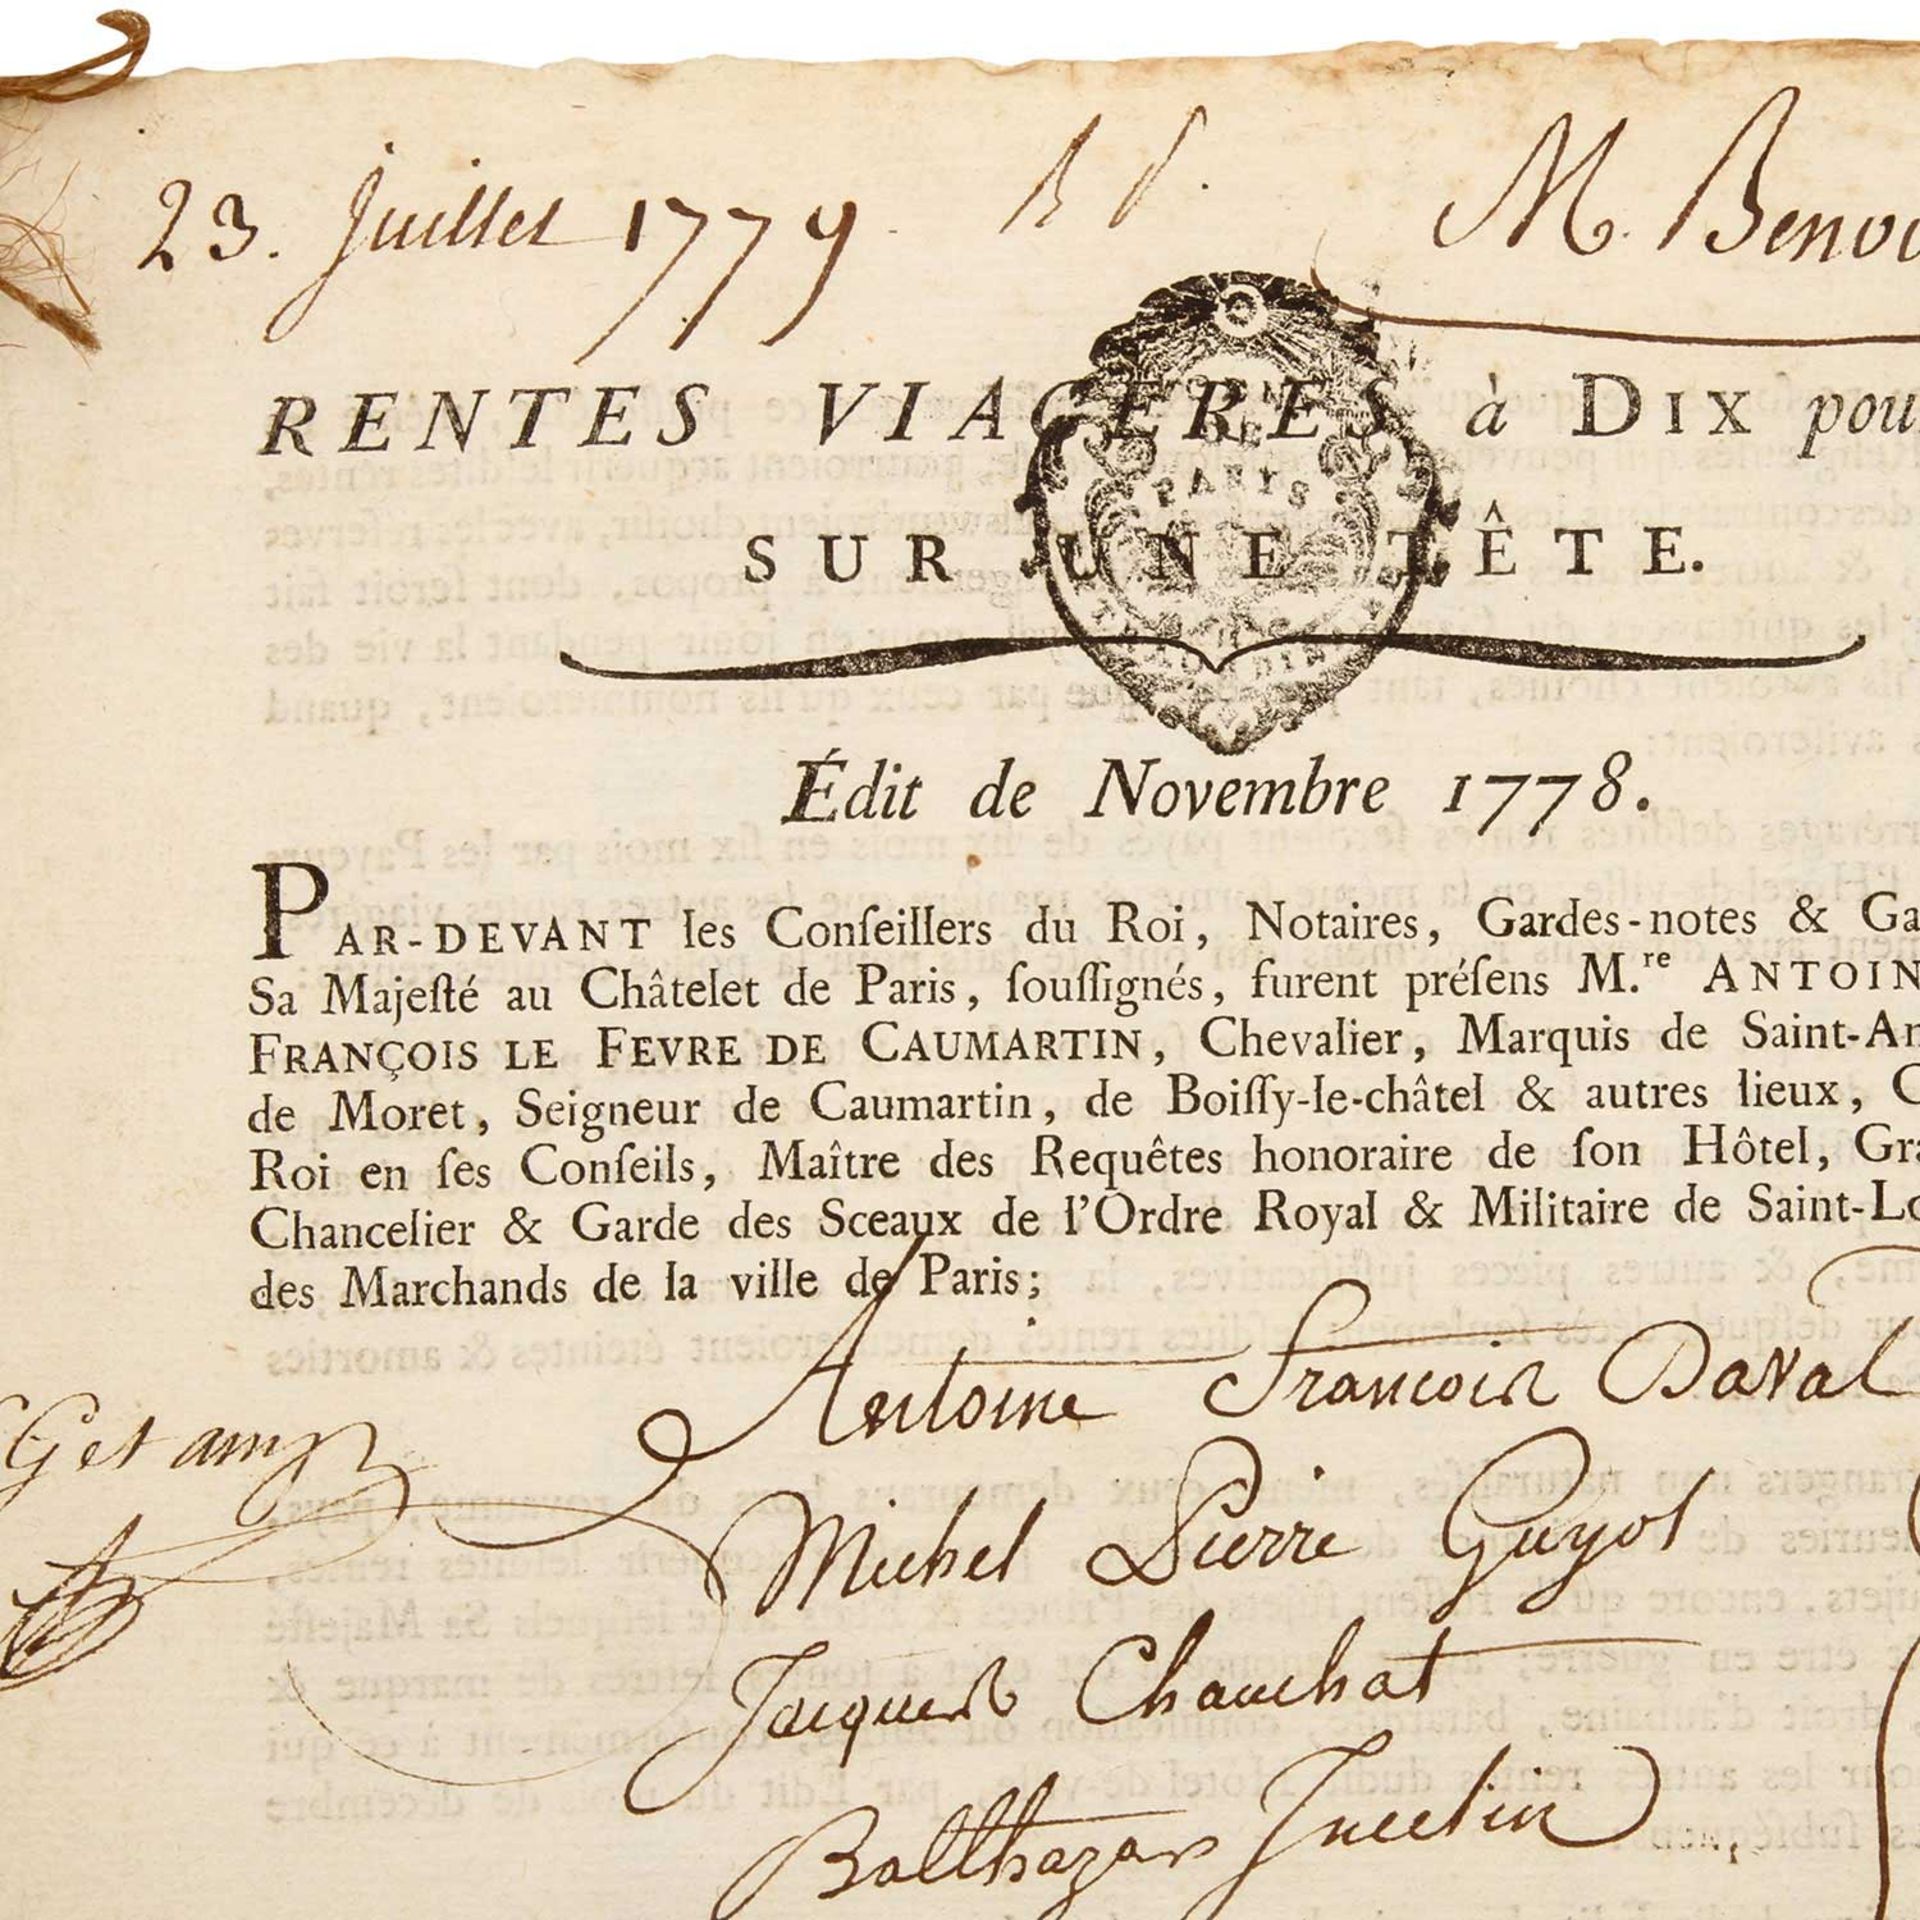 23. Juillet 1779. M. Benoi
RENTES VIAGERES à DIX pour
SUR UNE TÊTE.
PARIS
Édit de Novembre 1778.
PAR-DEVANT les Conſeillers du Roi, Notaires, Gardes-notes & Ga
Sa Majeſté au Châtelet de Paris, ſouſſignés, furent préſens M.re ANTOIN
FRANÇOIS LE FEVRE DE CAUMARTIN, Chevalier, Marquis de Saint-An
de Moret, Seigneur de Caumartin, de Boiſſy-le-châtel & autres lieux, C
Roi en ſes Conſeils, Maître des Requêtes honoraire de ſon Hôtel, Gra
Chancelier & Garde des Sceaux de l'Ordre Royal & Militaire de Saint-Lo
des Marchands de la ville de Paris;
Antoine François Daval
Michel Pierre Guyot
Jacques Chauchat
Balthazar